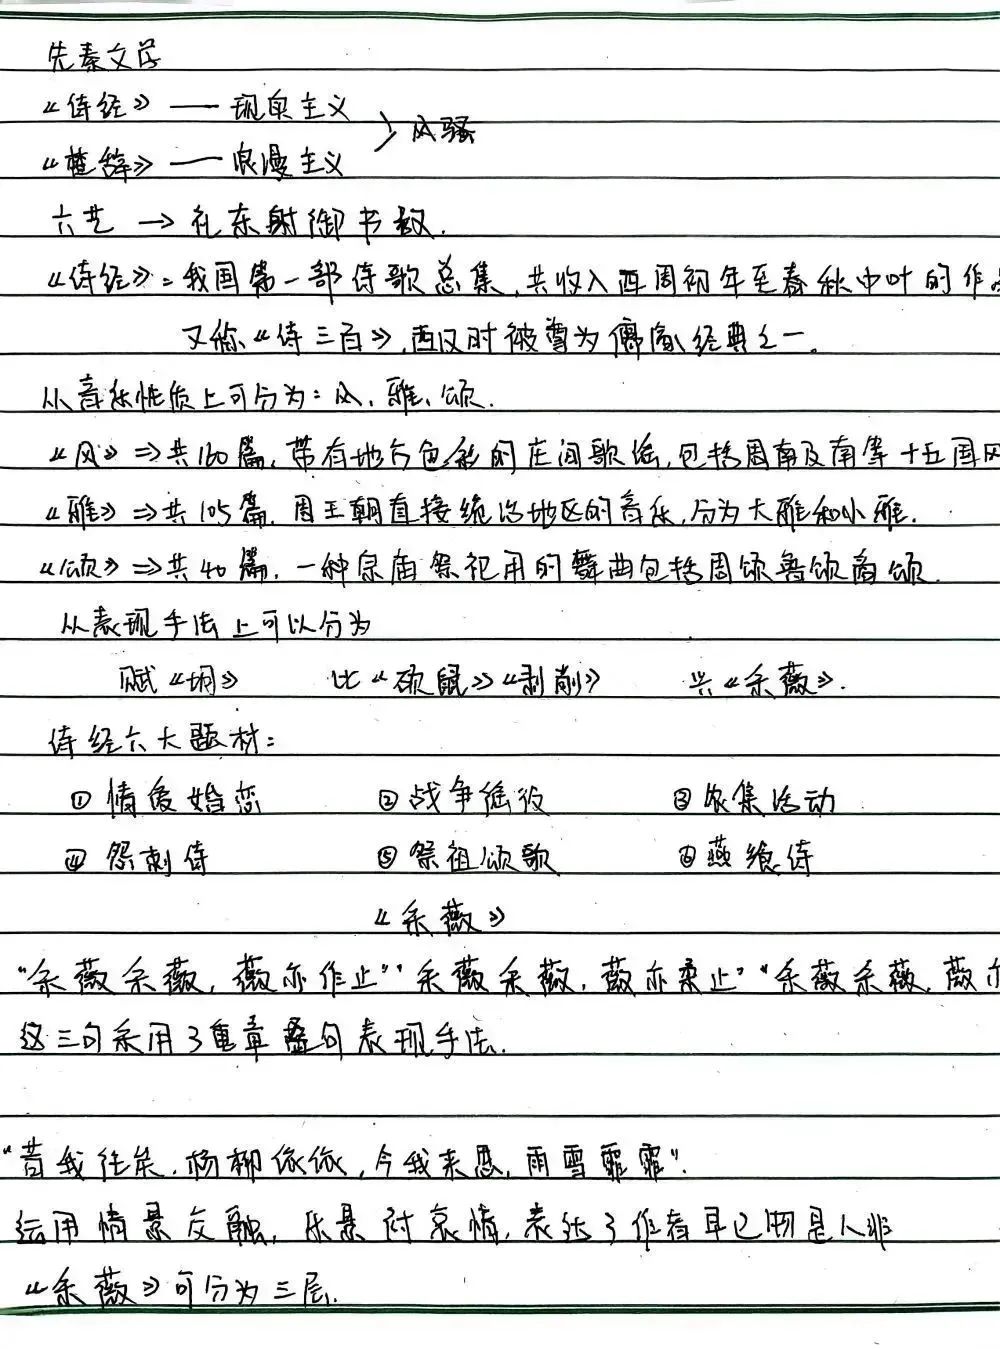 先秦文学
《诗经》—— 现实主义
〉风骚
《楚辞》—— 浪漫主义
六艺 → 礼乐射御书数.
《诗经》:我国第一部诗歌总集,共收入西周初年至春秋中叶的作品
又称《诗三百》,西汉时被尊为儒家经典之一。
从音乐性质上可分为:风、雅、颂.
《风》⇒共160篇,带有地方色彩的民间歌谣,包括周南及南等十五国风
《雅》⇒共105篇,周王朝直接统治地区的音乐,分为大雅和小雅.
《颂》⇒共40篇,一种宗庙祭祀用的舞曲包括周颂鲁颂商颂.
从表现手法上可以分为
赋《氓》 比《硕鼠》《剥削》 兴《采薇》.
诗经六大题材:
①情爱婚恋 ②战争徭役 ③农集活动
④怨刺诗 ⑤祭祖颂歌 ⑥燕飨诗
《采薇》
"采薇采薇,薇亦作止""采薇采薇,薇亦柔止""采薇采薇,薇亦
这三句采用了重章叠句表现手法.
"昔我往矣,杨柳依依,今我来思,雨雪霏霏".
运用情景交融,乐景衬哀情,表达了作者早已物是人非
《采薇》可分为三层.